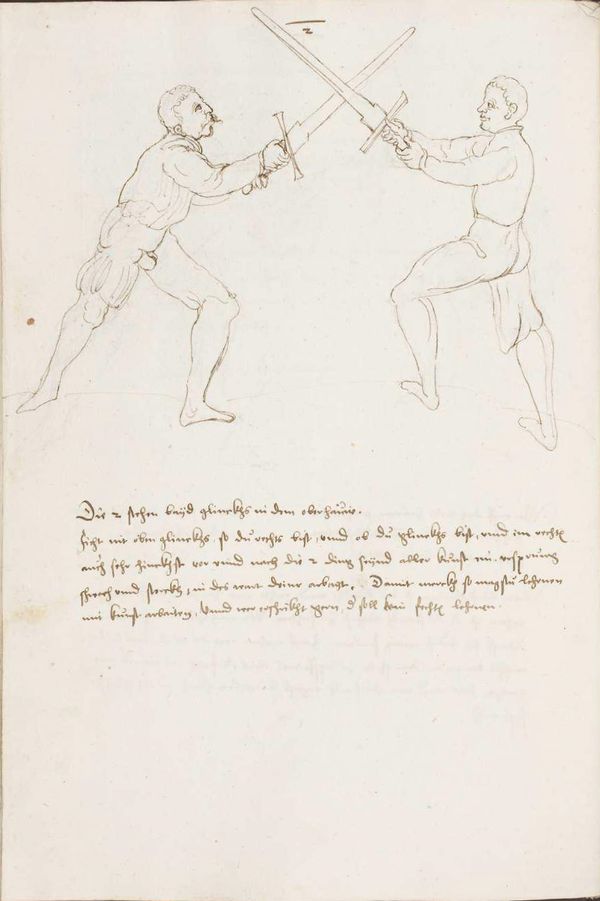 2
Die 2 stehen baÿd glinckhs in dem oberhauw.
ficht nit oben glinckhs, so du rechts bist, und ob du glinckhs bist, und im rechtē
auch sehr hinckhst vor und nach die 2 ding seÿnd aller kunst ein ursprung
schwech und sterckh, in des wart deiner arbayt. Damit merckh so magstu lehrnen
mit kunst arbaiten, Unnd wer erschrikht gern, d' soll kein fechtē lehrnen.